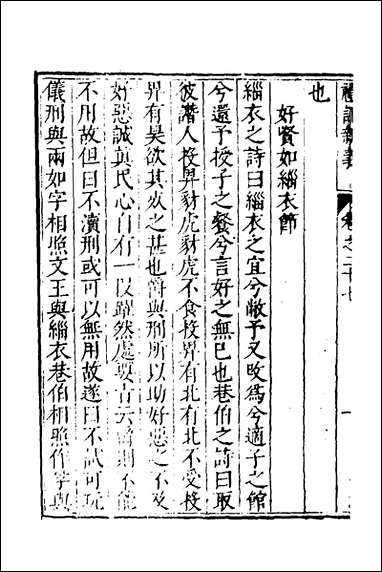 禮記新義 卷之二十七 一
也
好賢如緇衣節
緇衣之詩曰緇衣之宜兮敝予又改為兮適子之館
兮還予授子之餐兮言好之無已也巷伯之詩曰取
彼譖人投畀豺虎豺虎不食投畀有北有北不受投
畀有昊欲其死之甚也爵與刑所以助好惡之不及
好惡誠與民心自有一以躍然處要古云爵則不能
不用故但曰不瀆刑或可以無用故遂曰不試可玩
儀刑與兩如字相照文王與緇衣巷伯相照作孚與